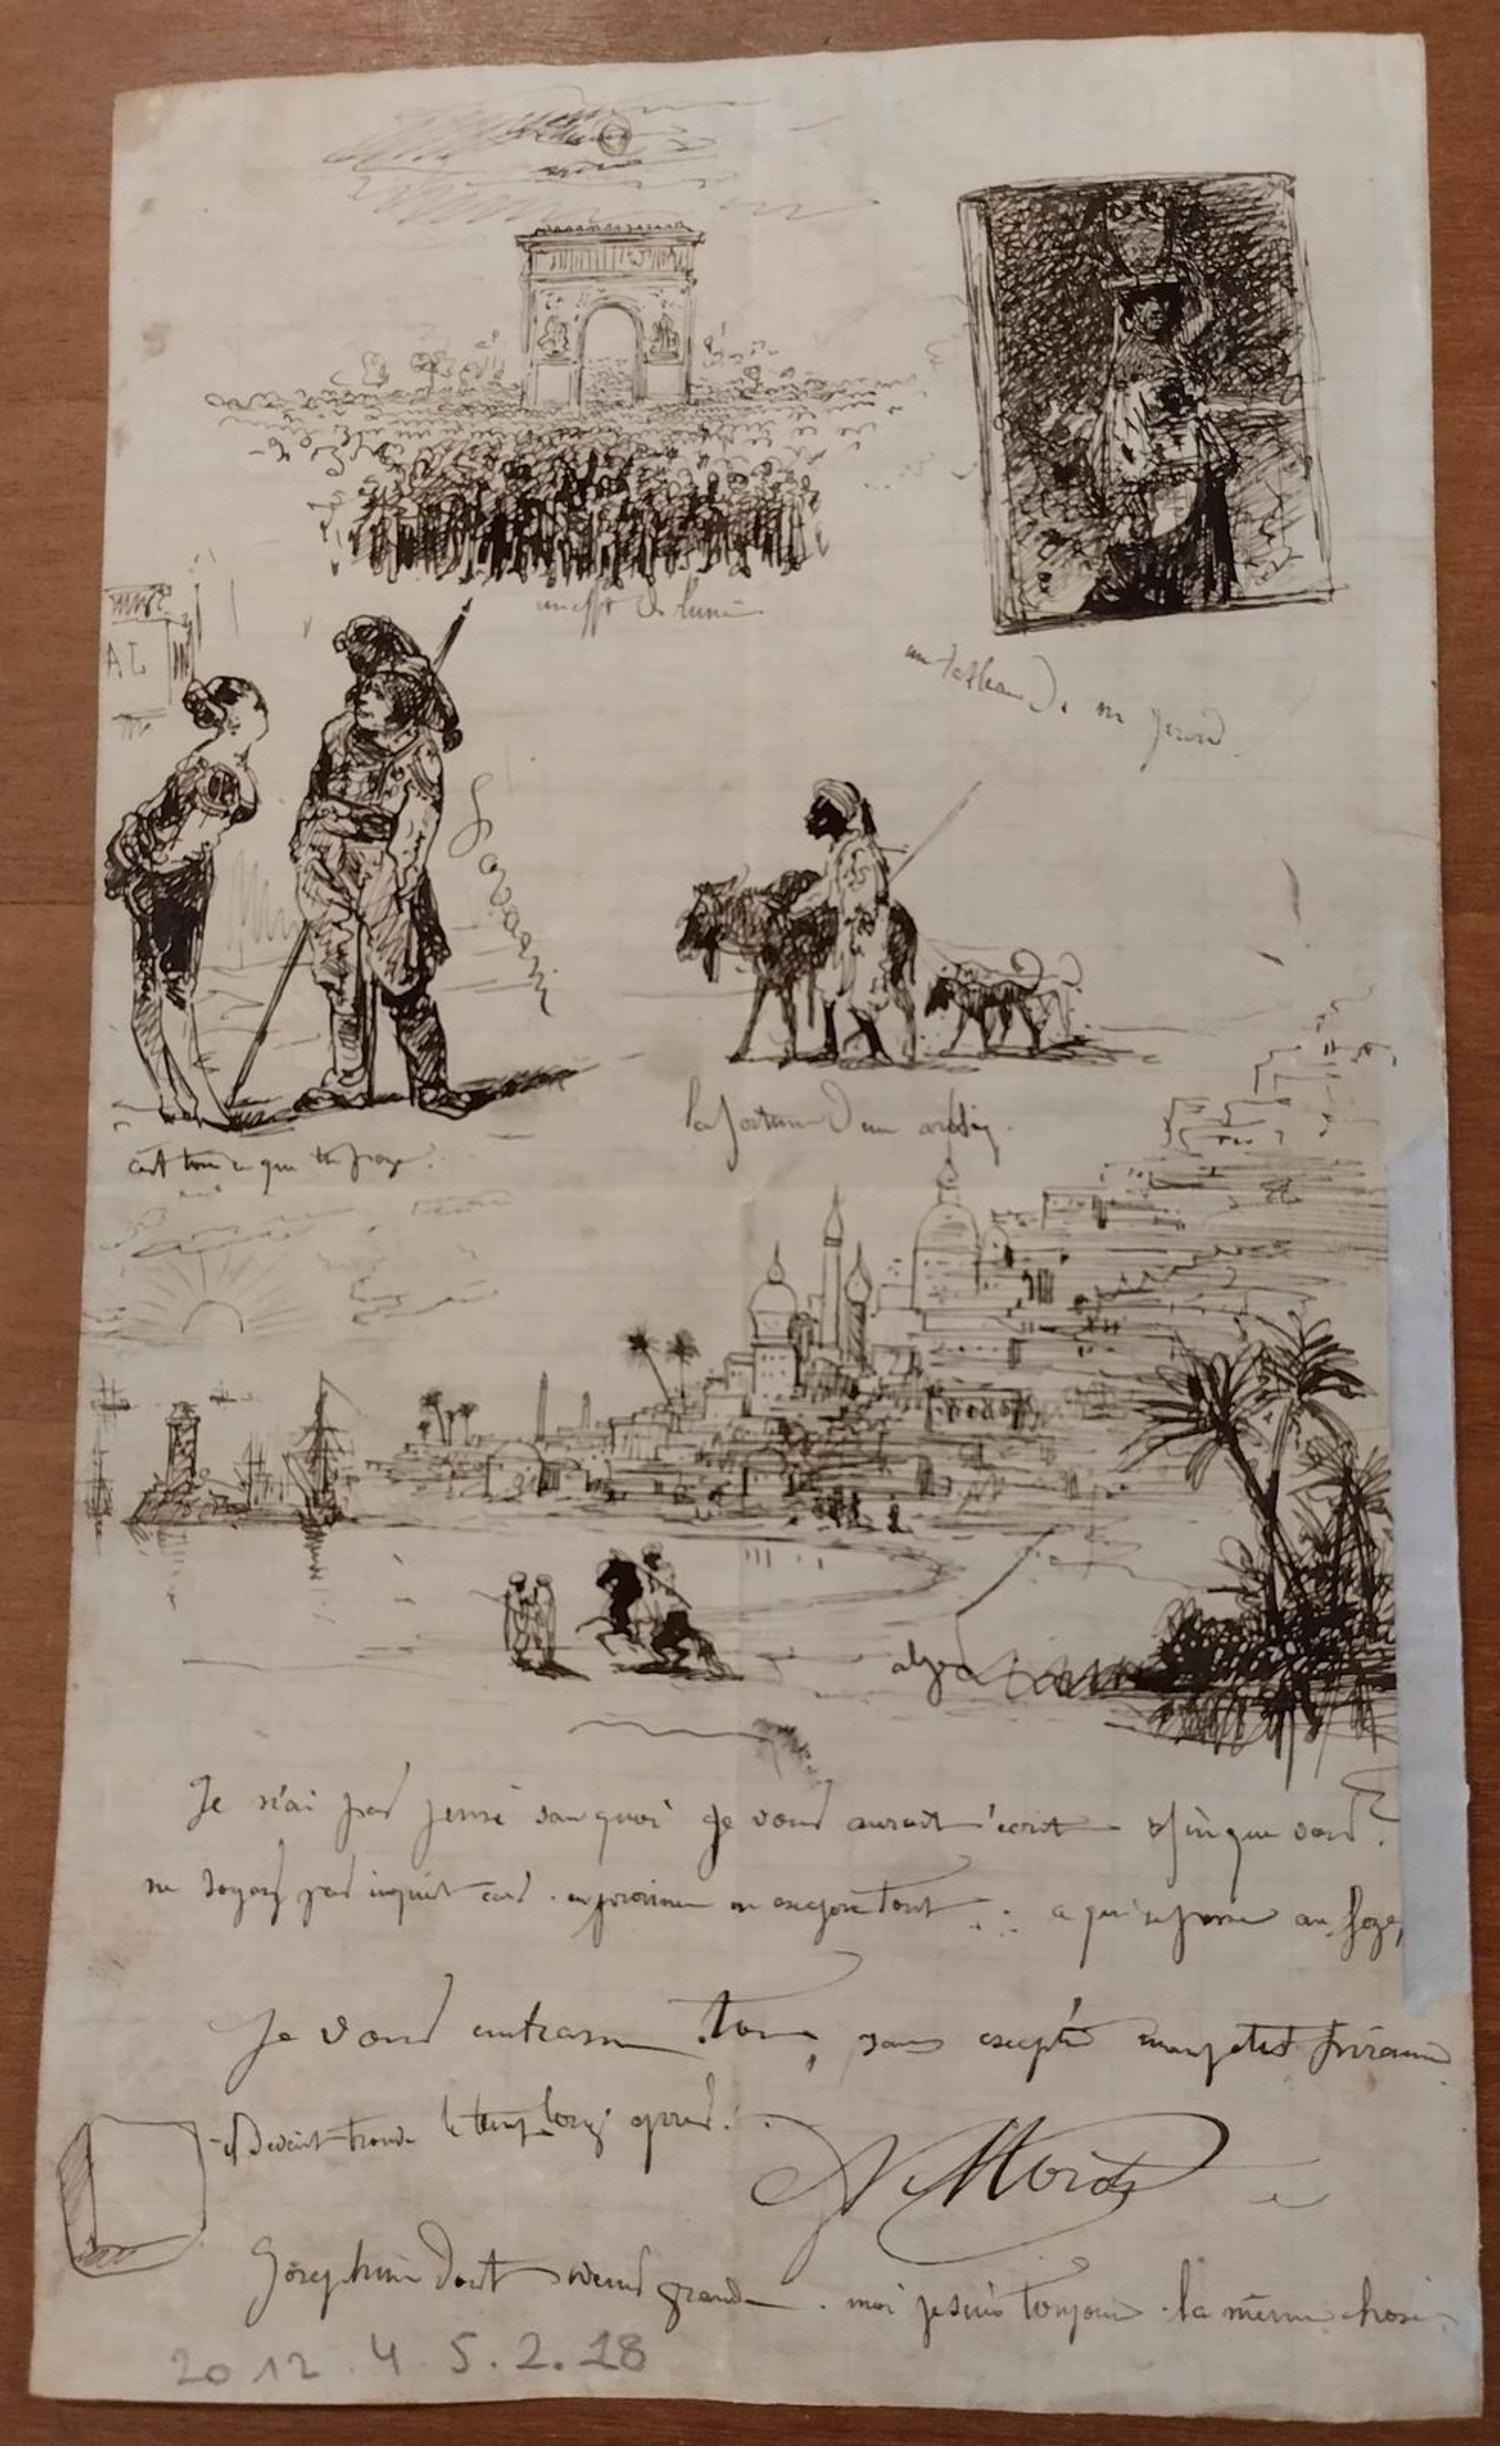 un effet de lune
un tableau de
JA
Gavarni
c'est tout ce que tu paye.
la fortune d'un arabe
alger
Je n'ai pas pensé sanquoi je vous aurait écrit
ne soyez pas inquiet car . en province on exagère tout . . : ce qui se passe au
Je vous embrasse tous, sans excepté mon petit
il devait trouver le temps long après
Joséphine doit venir grande . moi je suis toujours la même chose
2012.4.5.2.18